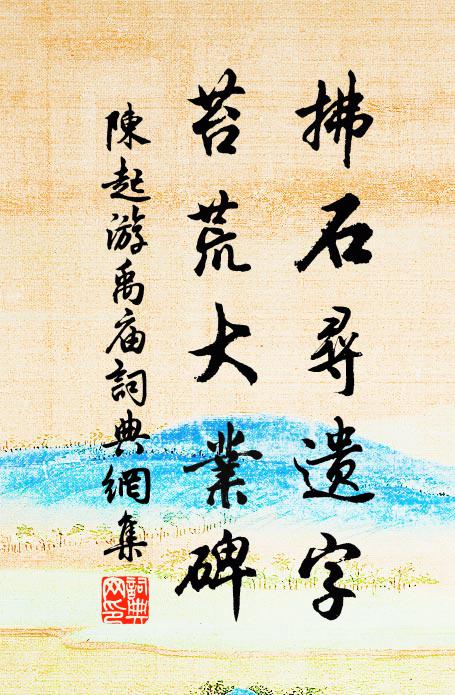 拂石尋遺字
苔荒大業碑
陳起游禹庙詞典網集